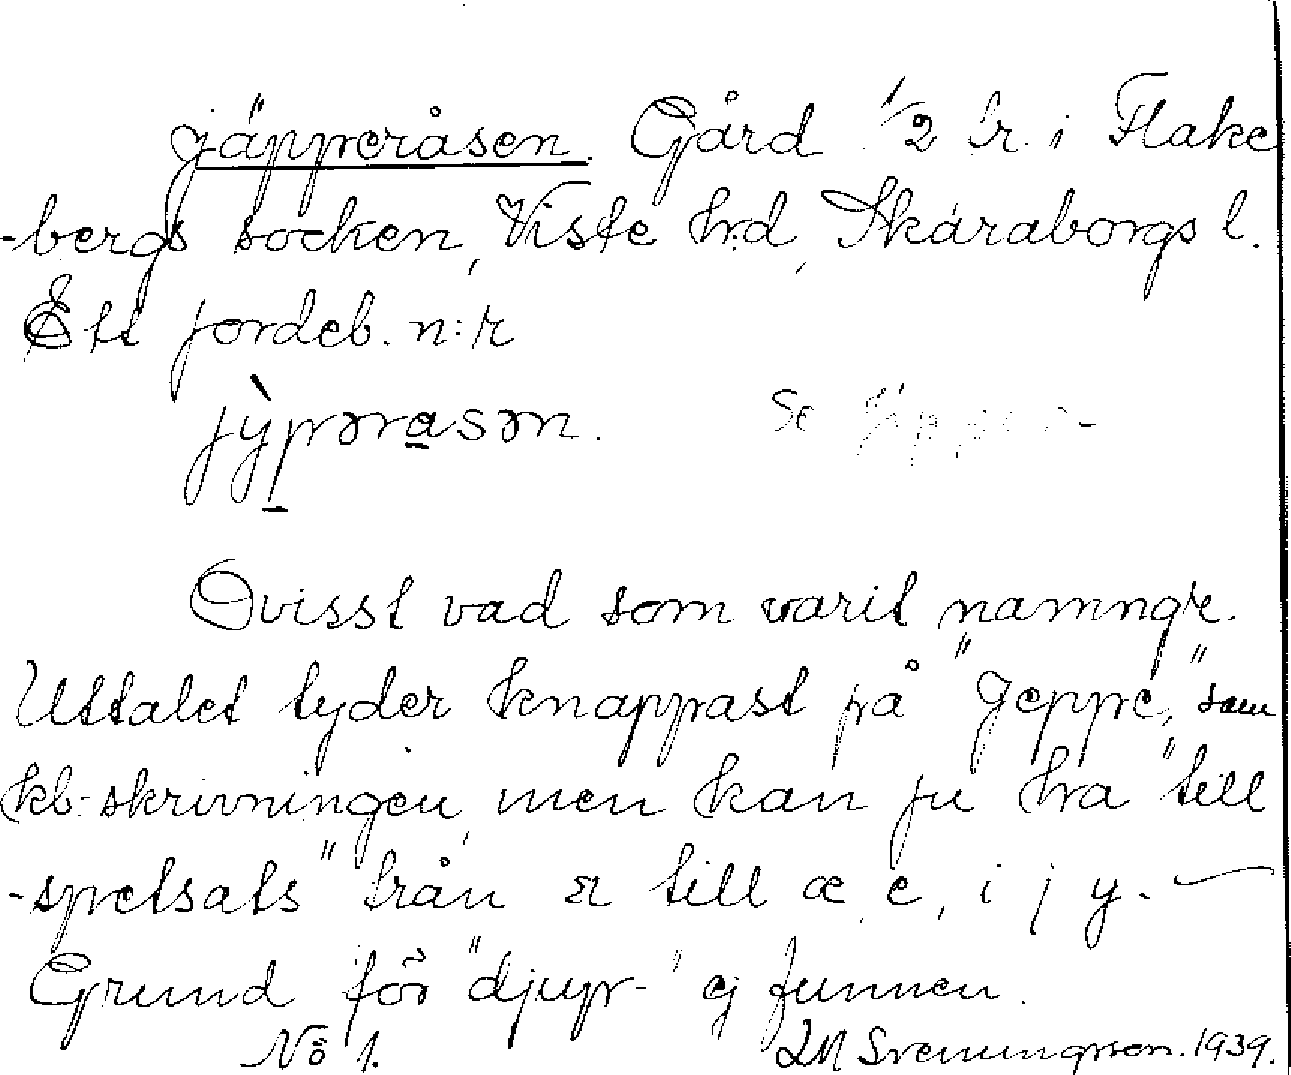 Jäpperåsen. Gård 1/2 hr. i Flake
-bergs socken, Viste hrd, Skaraborgs l.
Ett jordeb. n:r
jỳpərasən. Se Jipper-
Ovisst vad som varit namng're.
Uttalet tyder knappast på "Jeppe", som
kb-skrivningen, men kan ju ha "till
-spetsats" från a till æ, e, i j y. —
Grund för "djup-" ej funnen.
No 1. LM Svenungsson. 1939.